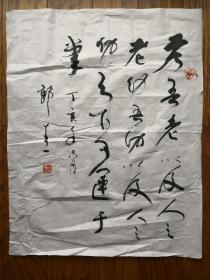 老吾老以及人之
老幼吾幼以及人之
幼天下可运于
掌
丁亥年
郭